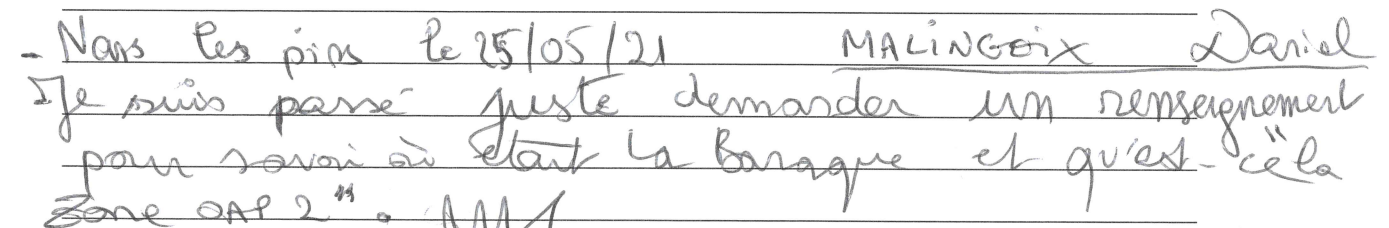 - Nans les pins le 25/05/21 MALINGOIX Daniel
Je suis passé juste demander un renseignement
pour savoi où était la Baraque et qu'est-ce "la
Zone OAP 2".